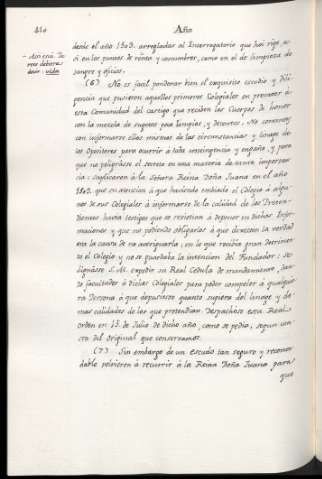 Año
desde el año 1503. arregladas al Interrogatorio que hoi rige a-
si en los puntos de vita y costumbres, como en el de limpieza de
sangre y oficios.
(6) No es facil ponderar bien el exquisito cuidado y dili-
gencia que pusieron aquellos primeros Colegiales en precaver à
esta Comunidad del castigo que reciben los Cuerpos de honor
con la mezcla de sugetos poco limpios, y decentes. No contentos
con informarse ellos mismos de las circunstancias y linage de
los Opositores, para ocurrir à toda contingencia y engaño, y para
que no peligrase el acierto en una materia de tanta importan-
cia: suplicaron à la Señora Reina Doña Juana en el año
que en atencion à que haviendo embiado el Colegio à algu-
nos de sus Colegiales à informarse de la calidad de los Preten-
dientes havia testigos que se resistian à deponer en dichas Infor-
maciones y que no podiendo obligarlos à que dixesen la verdad
era la causa de no averiguarla; en lo que recibia gran detrimen-
to el Colegio y no se guardaba la intencion del Fundador: se
dignase S. M. expedir su Real Cedula de mandamiento, dan-
do facultades à dichos Colegiales para poder compeler à qualquie-
ra Persona à que depusiese quanto supiera del linage y de-
mas calidades de los que pretendian. Despachóse esta Real
orden en 13. de Julio de dicho año, como se pedia, segun cons-
ta del original que conservamos.
(7) Sin embargo de un escudo tan seguro y recomen-
dable volvieron à recurrir à la Reina Doña Juana para
que